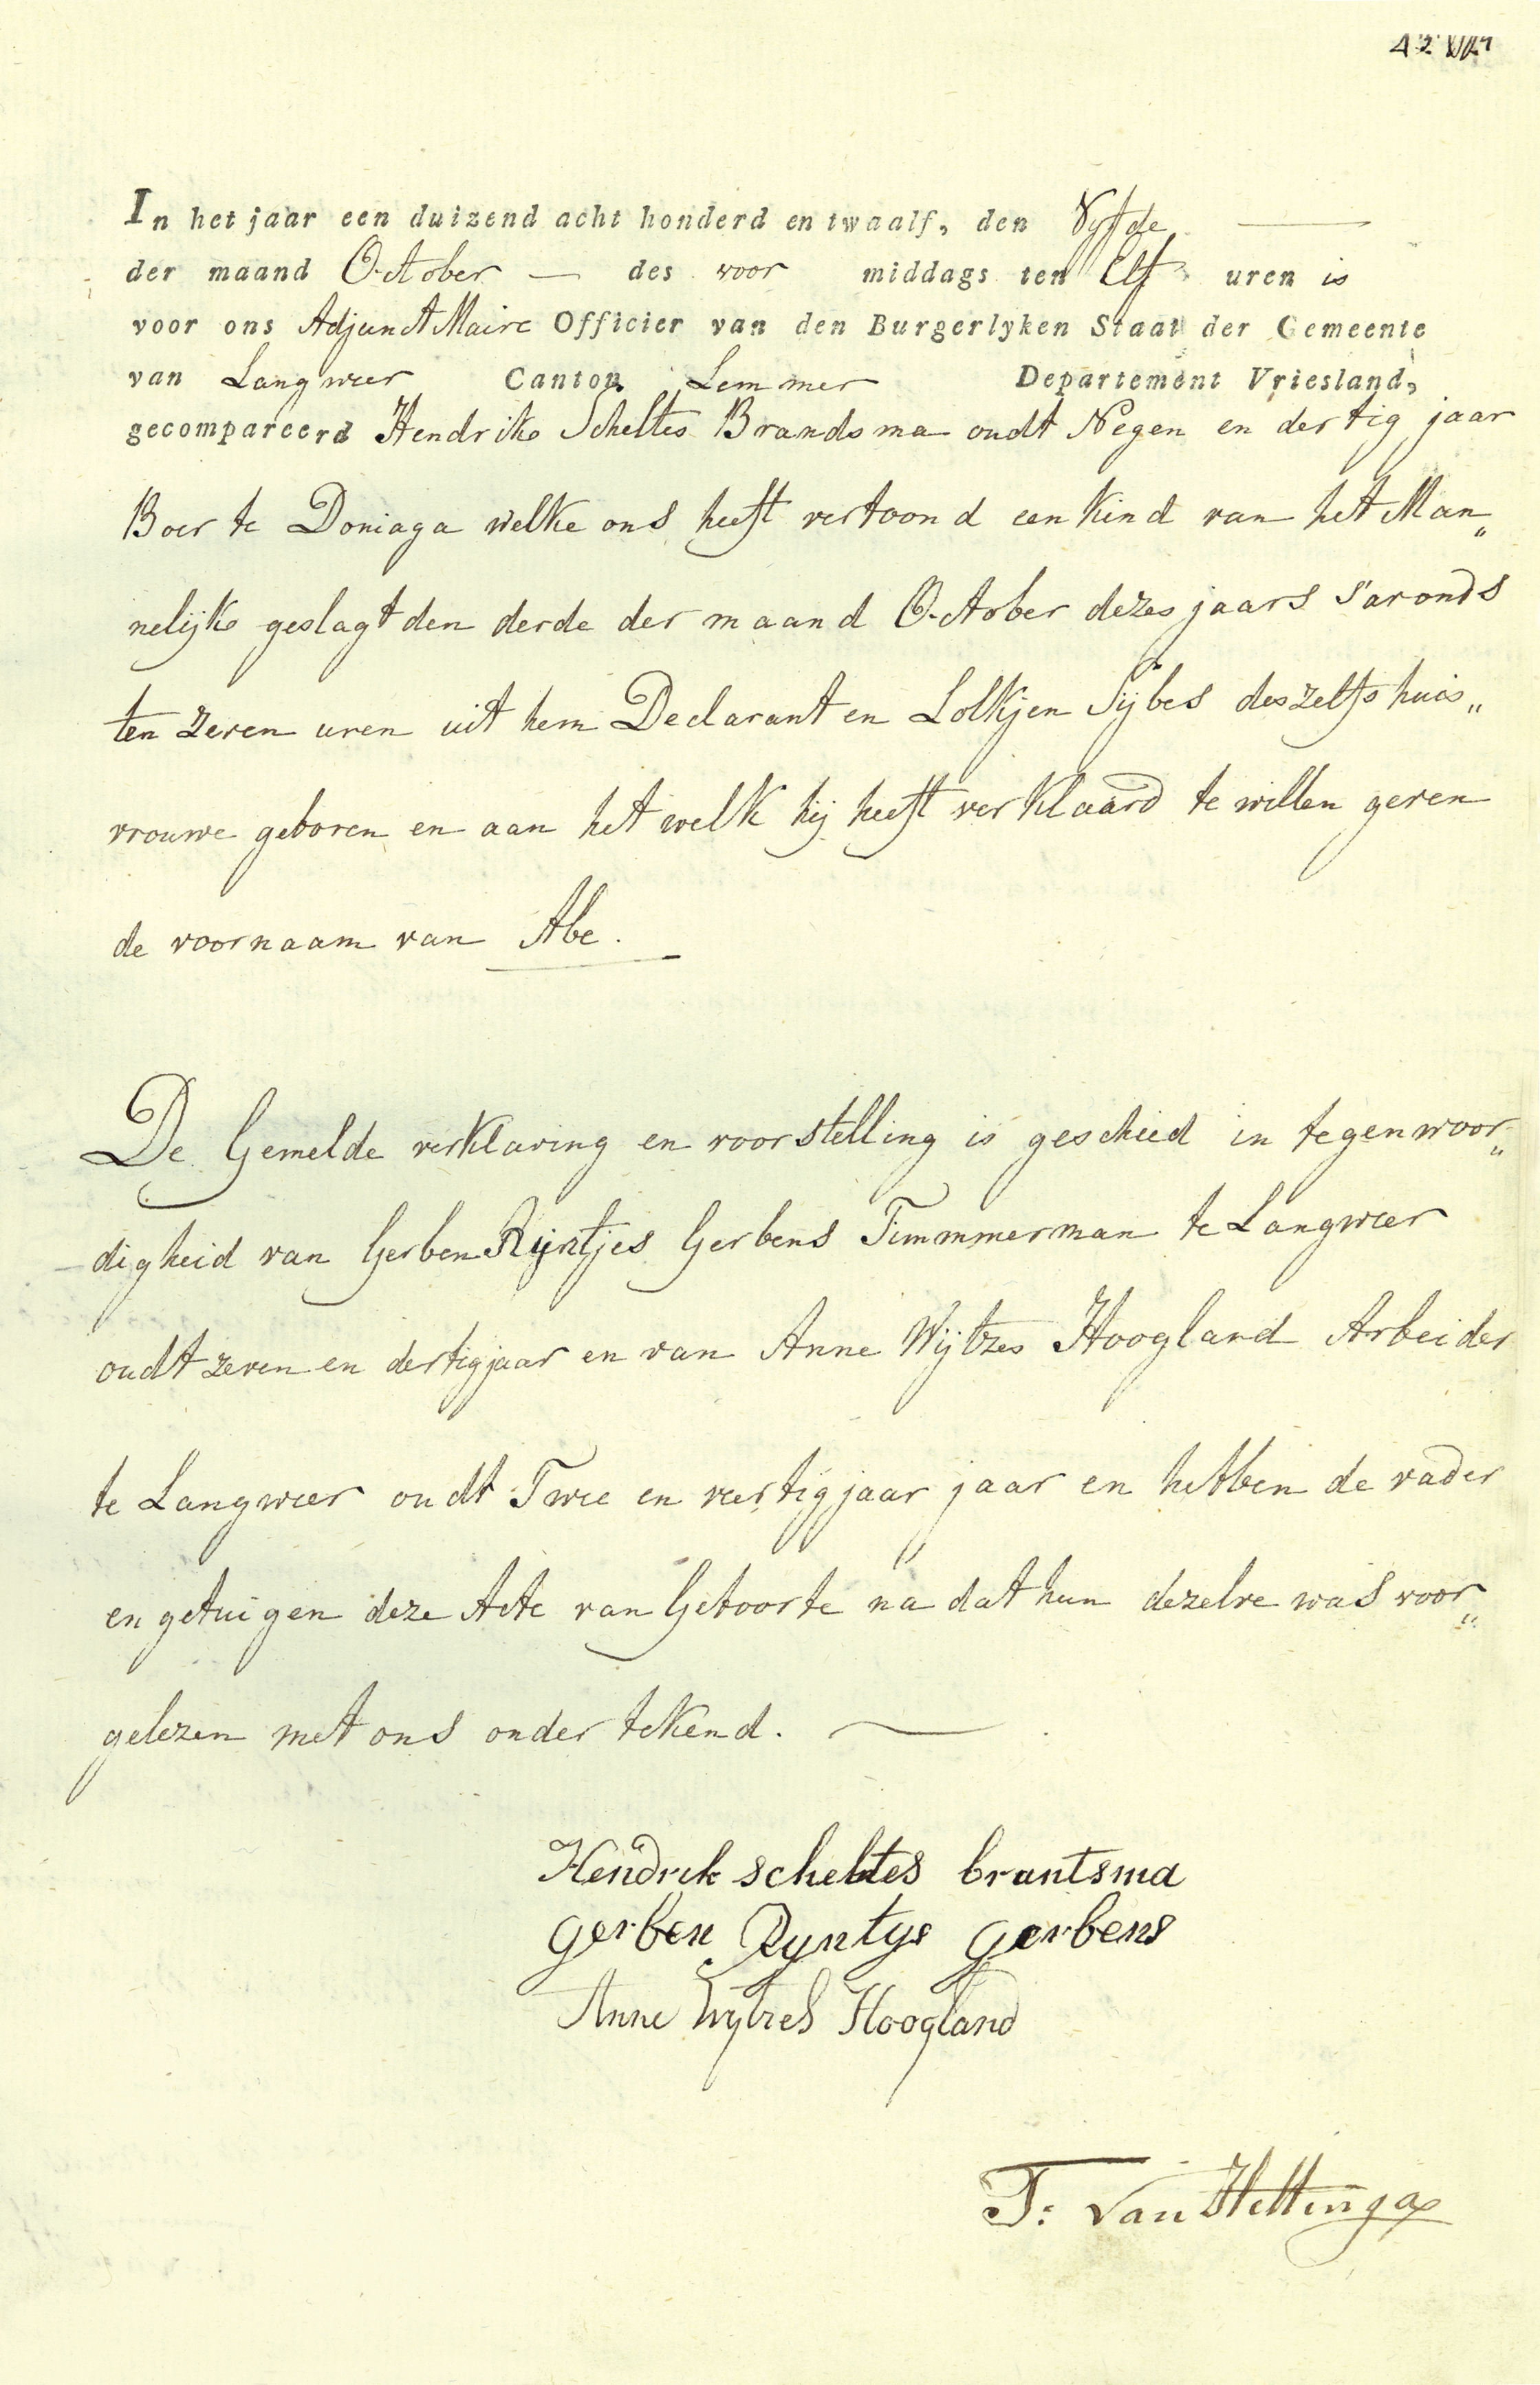 In het jaar een duizend acht honderd en twaalf, den Vyfde
der maand October — des voor middags ten Elf uren is
voor ons Adjunct Maire Officier van den Burgerlyken Staat der Gemeente
van Langweer Canton Lemmer Departement Vriesland,
gecompareerd Hendrik Scheltes Brandsma oudt Negen en dertig jaar
Boer te Doniaga welke ons heeft vertoond een kind van het Man„
nelijk geslagt den derde der maand October dezes jaars s'avonds
ten zeven uren uit hem Declarant en Lolkjen Sijbes deszelfs huis„
vrouwe geboren en aan het welk hij heeft verklaard te willen geven
de voornaam van Abe.
De Gemelde verklaring en voorstelling is geschied in tegenwoor„
digheid van Gerben Rijntjes Gerbens Timmmerman te Langweer
oudt zeven en dertig jaar en van Anne Wijtzes Hoogland Arbeider
te Langweer oudt Twee en veertig jaar jaar en hebben de vader
en getuigen deze Acte van Geboorte na dat hun dezelve was voor„
gelezen met ons ondertekend. —
Hendrik scheltes brantsma
gerben Ryntys gerbens
Anne Wytzes Hoogland
T: Van Hettinga